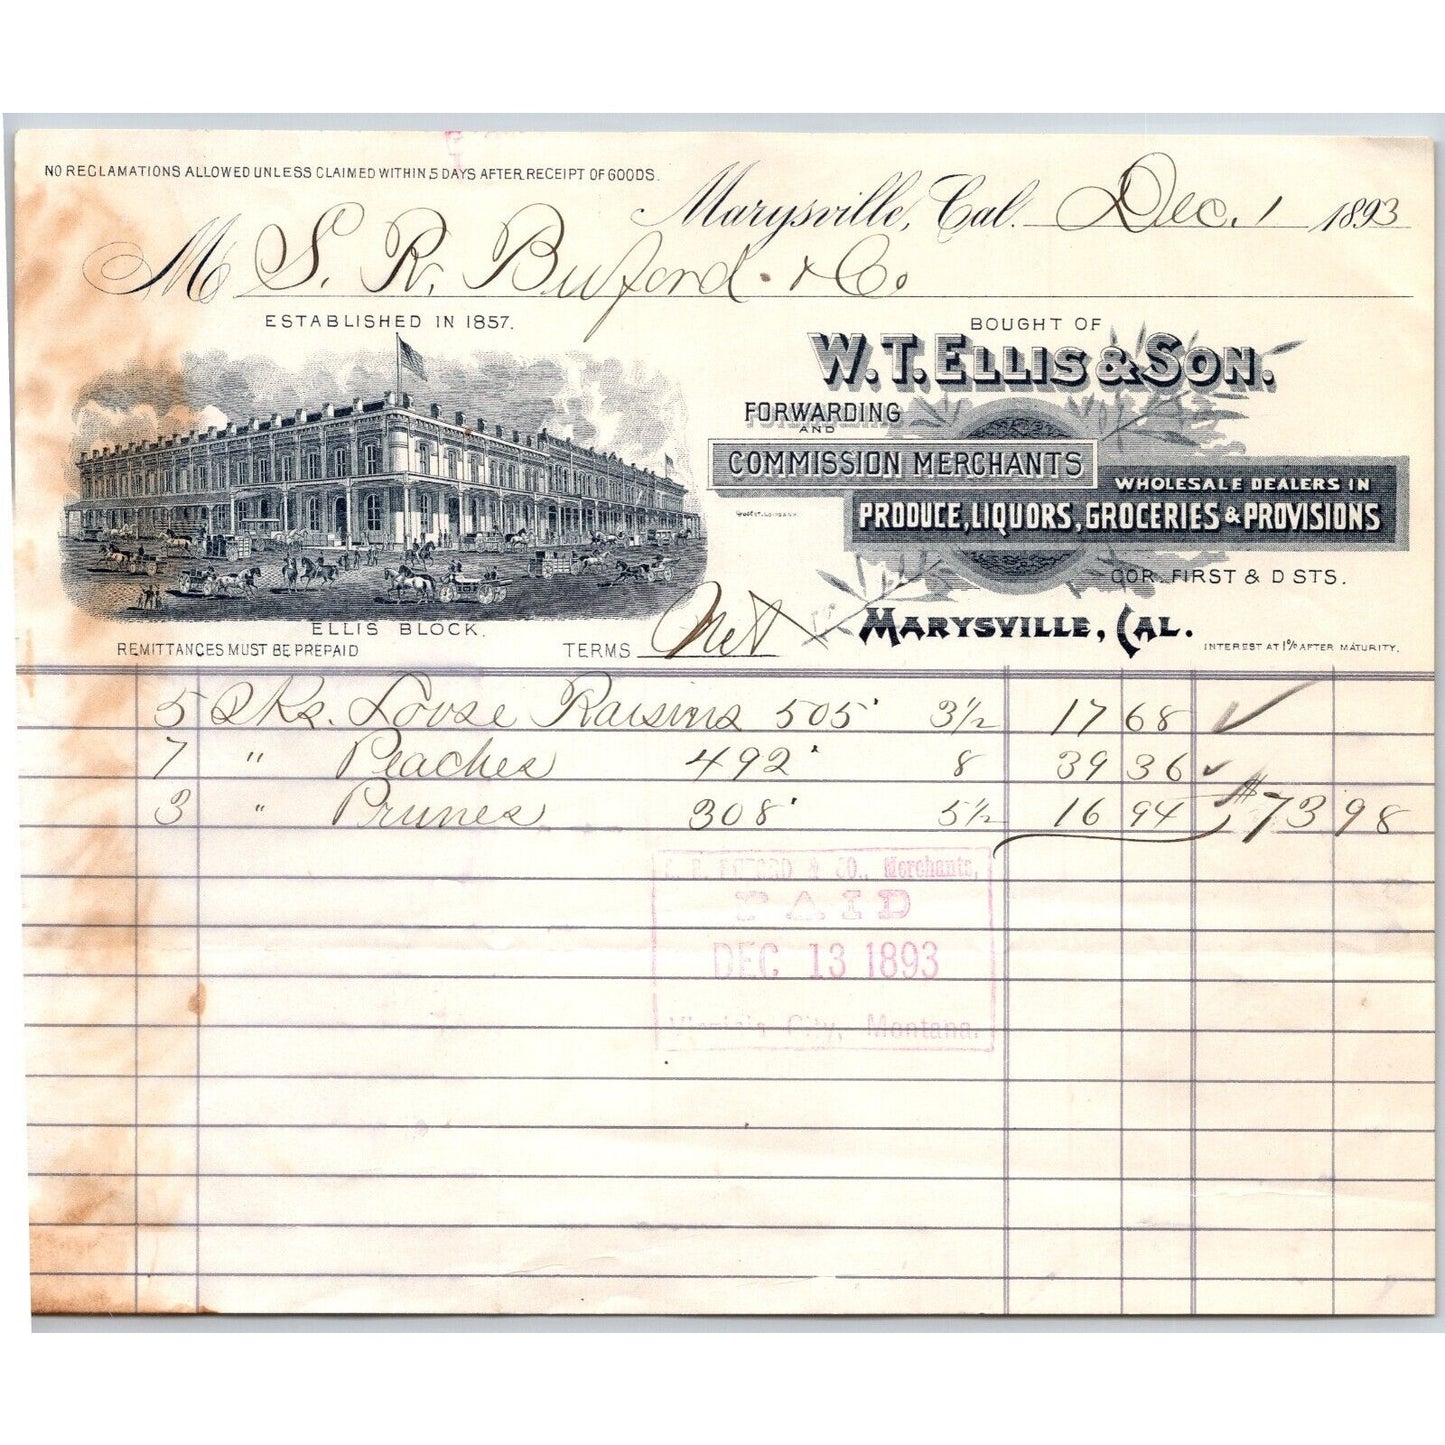 NO RECLAMATIONS ALLOWED UNLESS CLAIMED WITHIN 5 DAYS AFTER RECEIPT OF GOODS.
Marysville, Cal. Dec. 1 1893
M S. R. Buford & Co
ESTABLISHED IN 1857.
BOUGHT OF
W. T. ELLIS & SON.
FORWARDING
AND
COMMISSION MERCHANTS
WHOLESALE DEALERS IN
PRODUCE, LIQUORS, GROCERIES & PROVISIONS
COR. FIRST & D STS.
MARYSVILLE, CAL.
ELLIS BLOCK.
REMITTANCES MUST BE PREPAID
TERMS Net
INTEREST AT 1% AFTER MATURITY.
5 Sks. Loose Raisins 505 3½ 17 68
7 " Peaches 492 8 39 36
3 " Prunes 308 5½ 16 94 $73 98
& CO., Merchants,
PAID
DEC 13 1893
Virginia City, Montana.